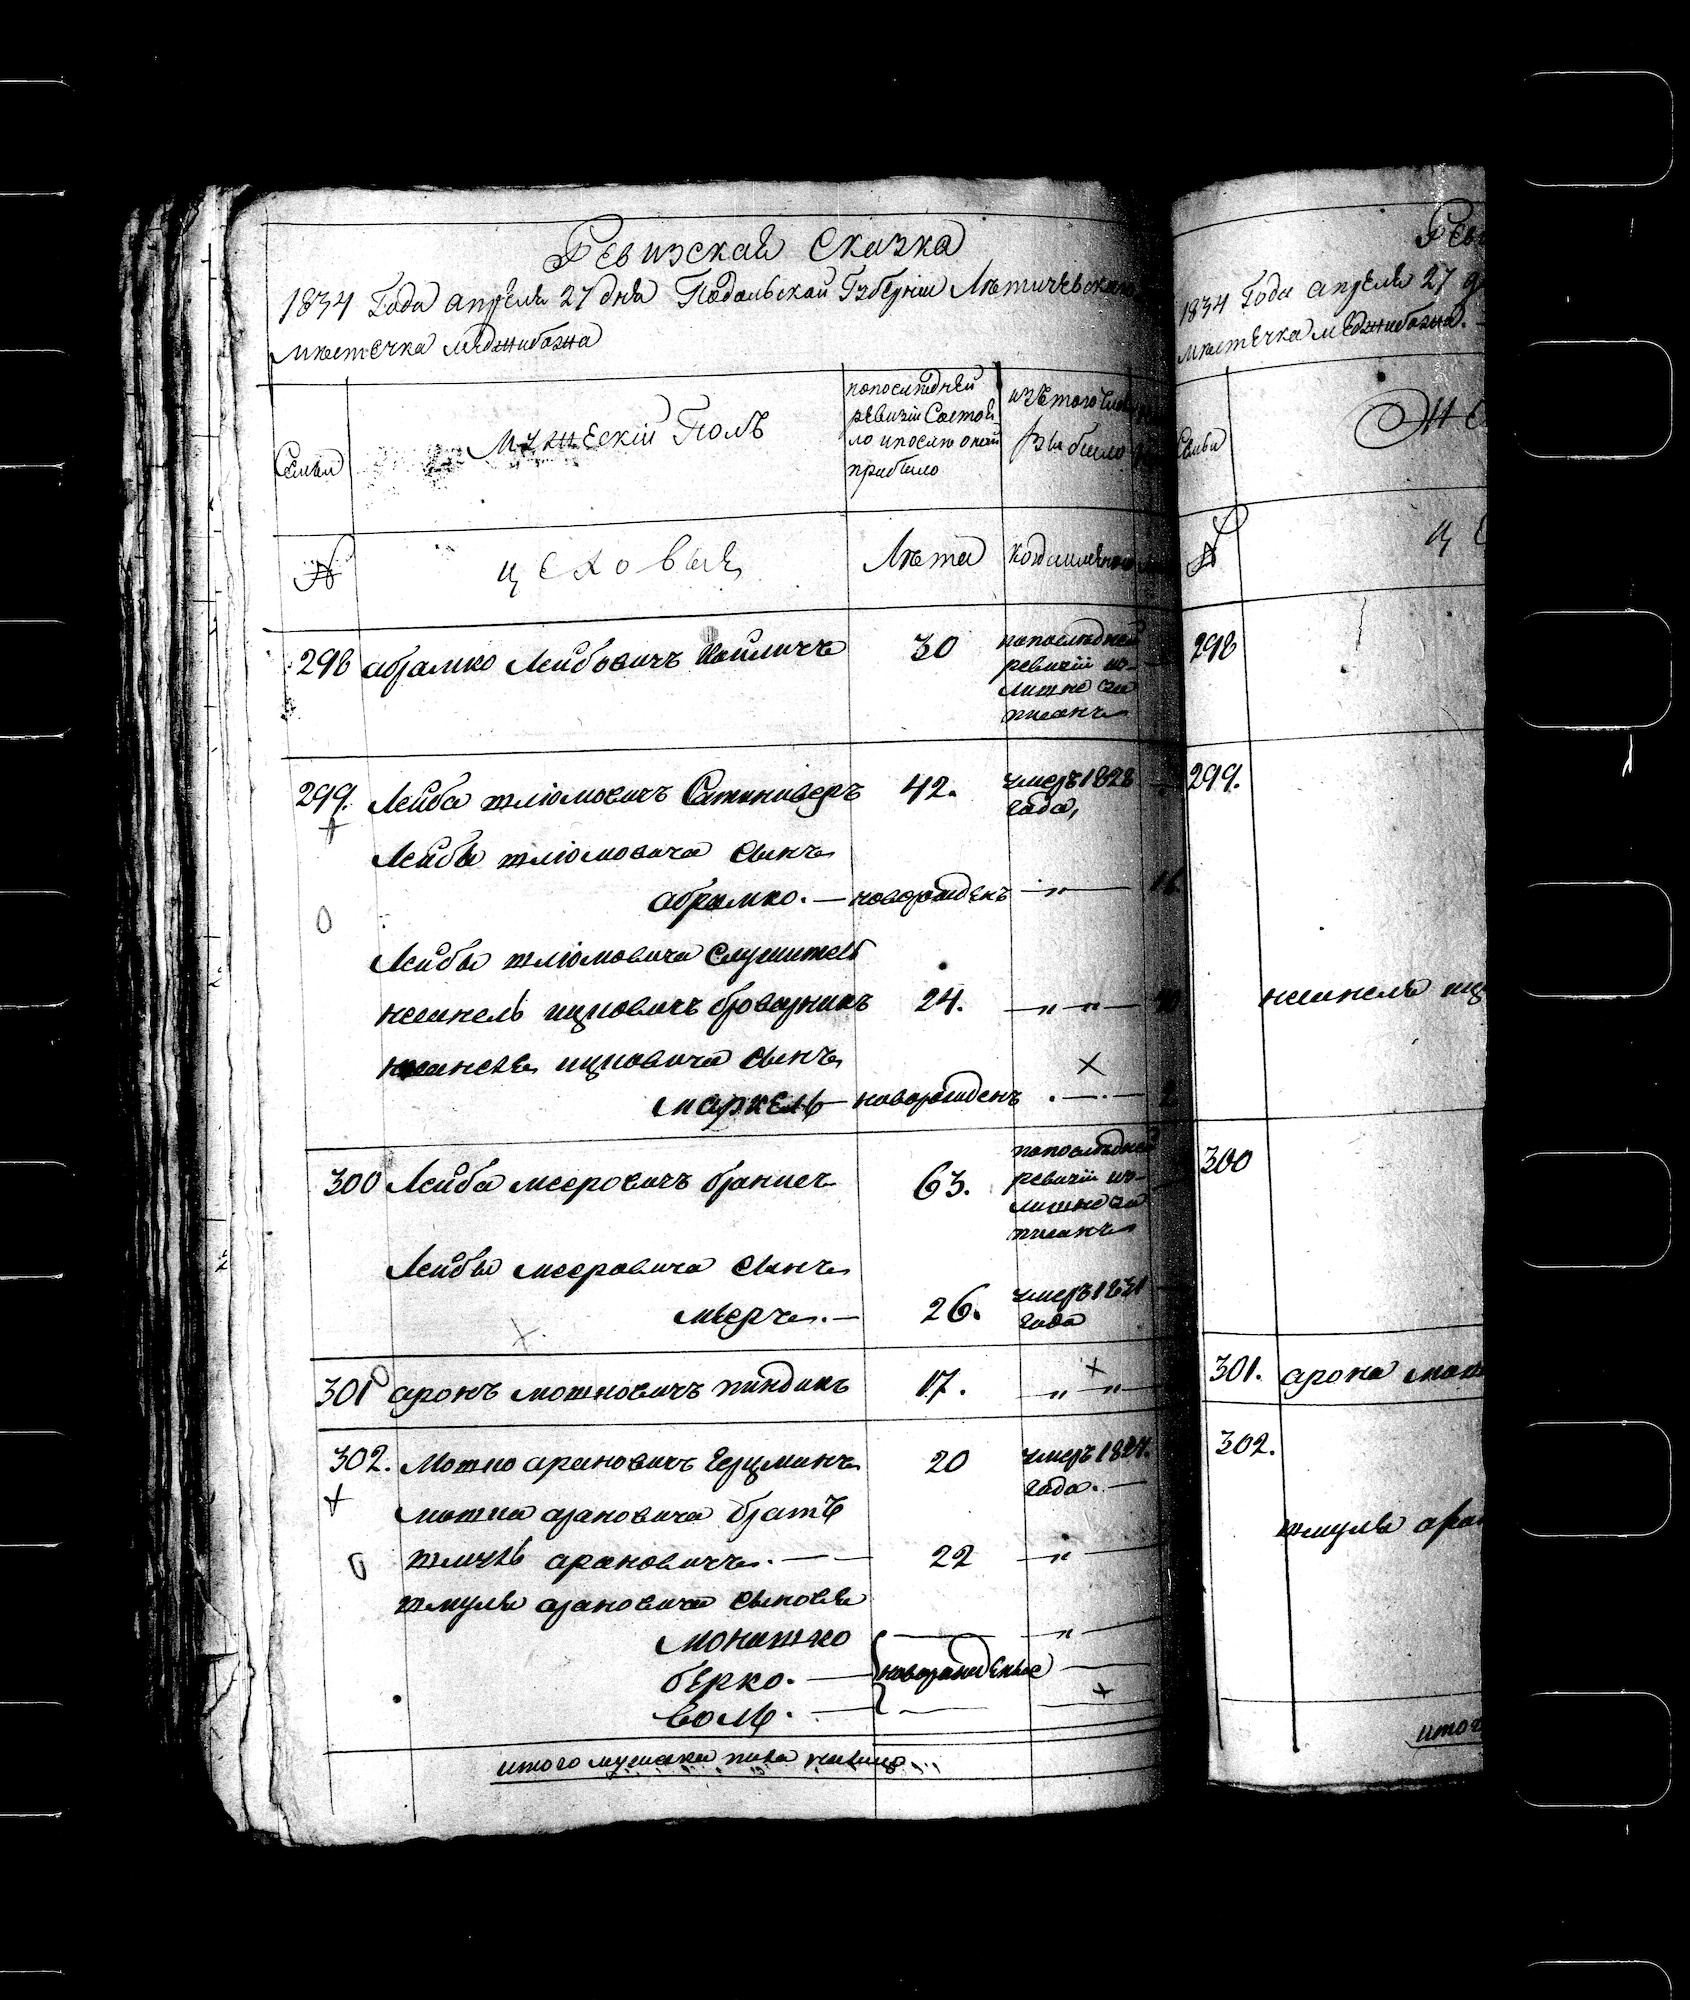 Ревизская Сказка
1834 Года апреля 27 дня Подольской Губернии Летичевского
местечка меджибожа
Семьи
мужеский Полъ
попоследней
ревизіи Состоя
ло ипосле оной
прибыло
изътого числа
выбыло
№
цеховые
Лета
298 абрамко Лейбовичъ
30
попоследней
ревизіи из
лишне за
писанъ
299. Лейба шліомовичъ Сатановеръ
42.
умеръ 1828
Года,
Лейбы шліомовича Сынъ
абрамко. — новорожденъ — „ — 16
Лейбы шліомовича Служитель
ицковичъ броварникъ
24.
— „ „ —
ицковича Сынъ
маркель — новорожденъ
2
300 Лейба мееровичъ
63.
попоследней
ревизіи из
лишне за
писанъ
Лейбы мееровича Сынъ
мееръ. —
26.
умеръ 1831
Года
301 аронъ мошковичъ пиндикъ
17.
— „ „ —
302. Мошко ароновичъ Герцманъ
20
умеръ 1824.
Года. —
мошка ароновича братъ
шмуль ароновичъ. — —
22
— „
шмуля ароновича Сыновья
Моношко
берко. — новорожденые
Воль. —
итого мужеска пола налицо
Рев
1834 Года апреля 27 д
местечка меджибожа.
Семьи
Же
№
це
298
299.
300
301. арона мош
302.
шмуля аро
итого